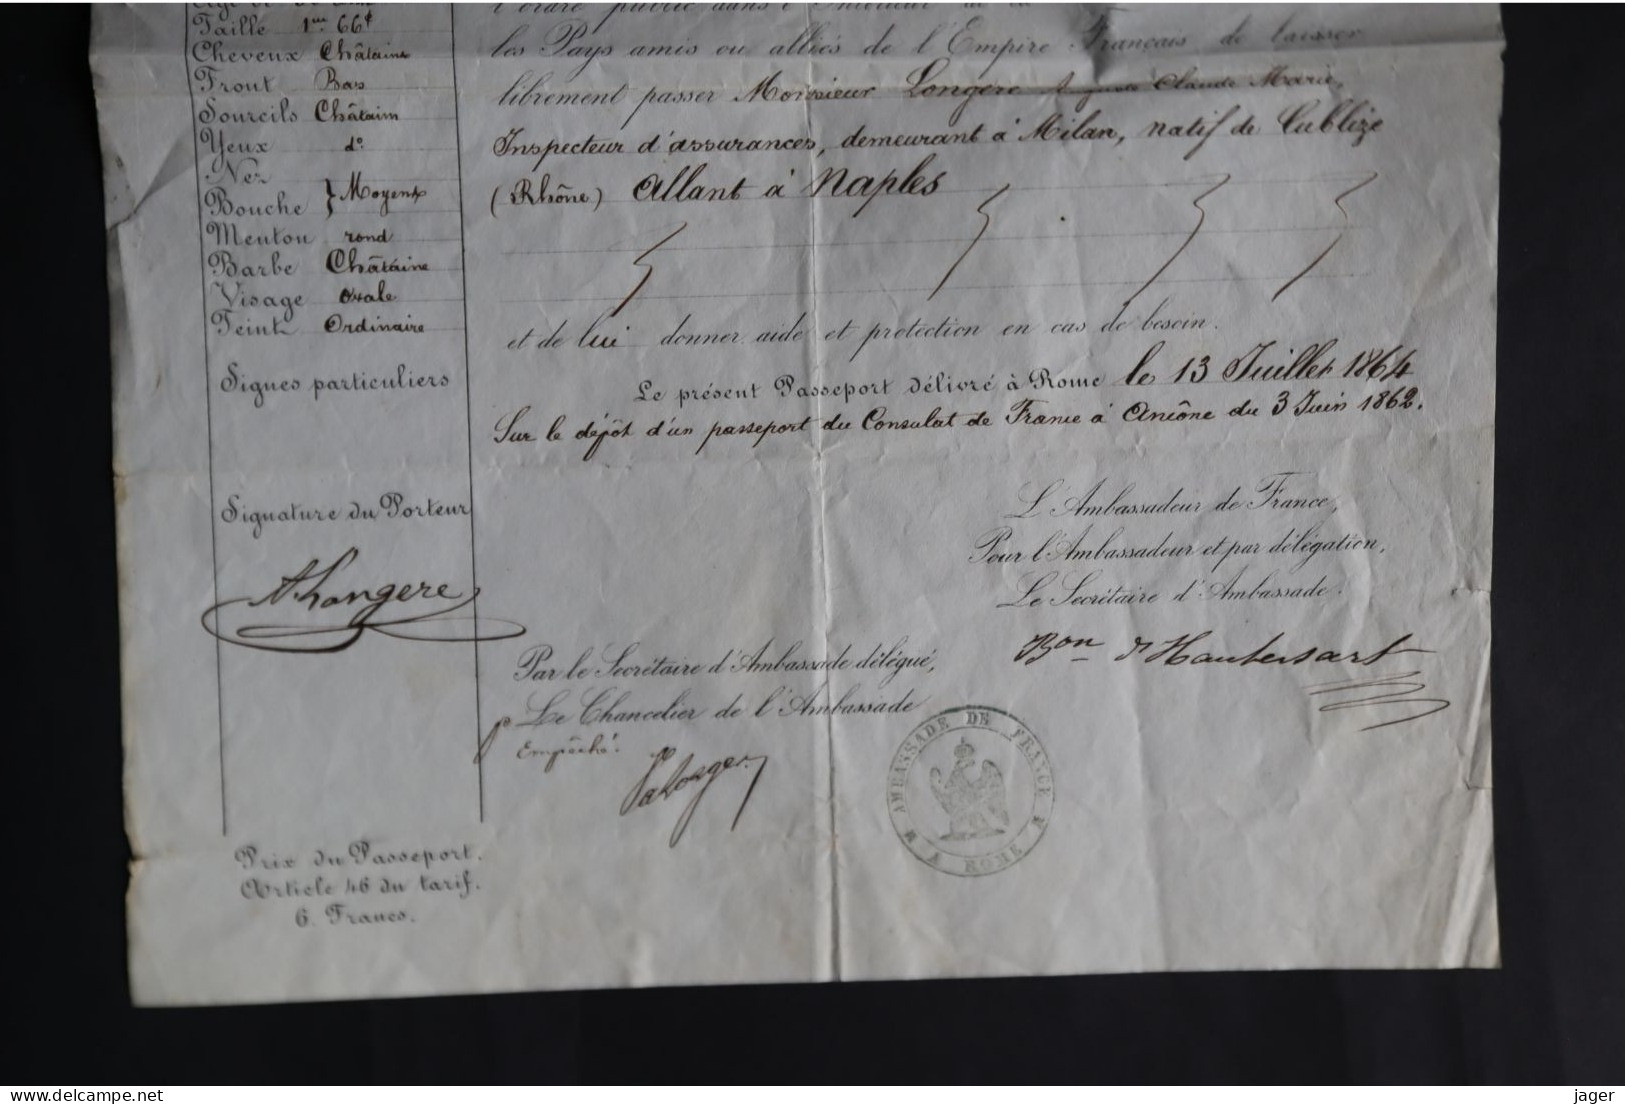 Taille 1m 66c
Cheveux Châtains
Front Bas
Sourcils Châtains
Yeux do
Nez
Bouche } Moyens
Menton rond
Barbe Châtaine
Visage ovale
Teint Ordinaire
Signes particuliers
Signature du Porteur
A. Longere
Prix du Passeport.
Article 46 du tarif.
6. Francs.
l'ordre public dans l'Intérieur de la
les Pays amis ou alliés de l'Empire Français de laisser
librement passer Monsieur Longere Claude Marie,
Inspecteur d'assurances, demeurant à Milan, natif de Cublize
(Rhône) allant à Naples
et de lui donner aide et protection en cas de besoin.
Le présent Passeport délivré à Rome le 13 Juillet 1864
Sur le dépôt d'un passeport du Consulat de France à Ancône du 3 Juin 1862.
L'Ambassadeur de France,
Pour l'Ambassadeur et par délégation,
Le Secrétaire d'Ambassade.
Bon d'Haubersart
Par le Secrétaire d'Ambassade délégué,
p Le Chancelier de l'Ambassade
Empêché.
AMBASSADE DE FRANCE A ROME
jager
www.delcampe.net